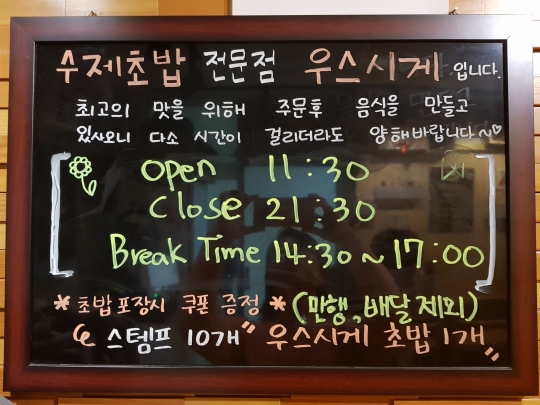 수제초밥 전문점 우스시게 입니다.
최고의 맛을 위해 주문후 음식을 만들고
있사오니 다소 시간이 걸리더라도 양해바랍니다~♡
open 11:30
close 21:30
Break Time 14:30~17:00
*초밥포장시 쿠폰 증정* (만행, 배달 제외)
스템프 10개" 우스시게 초밥 1개"